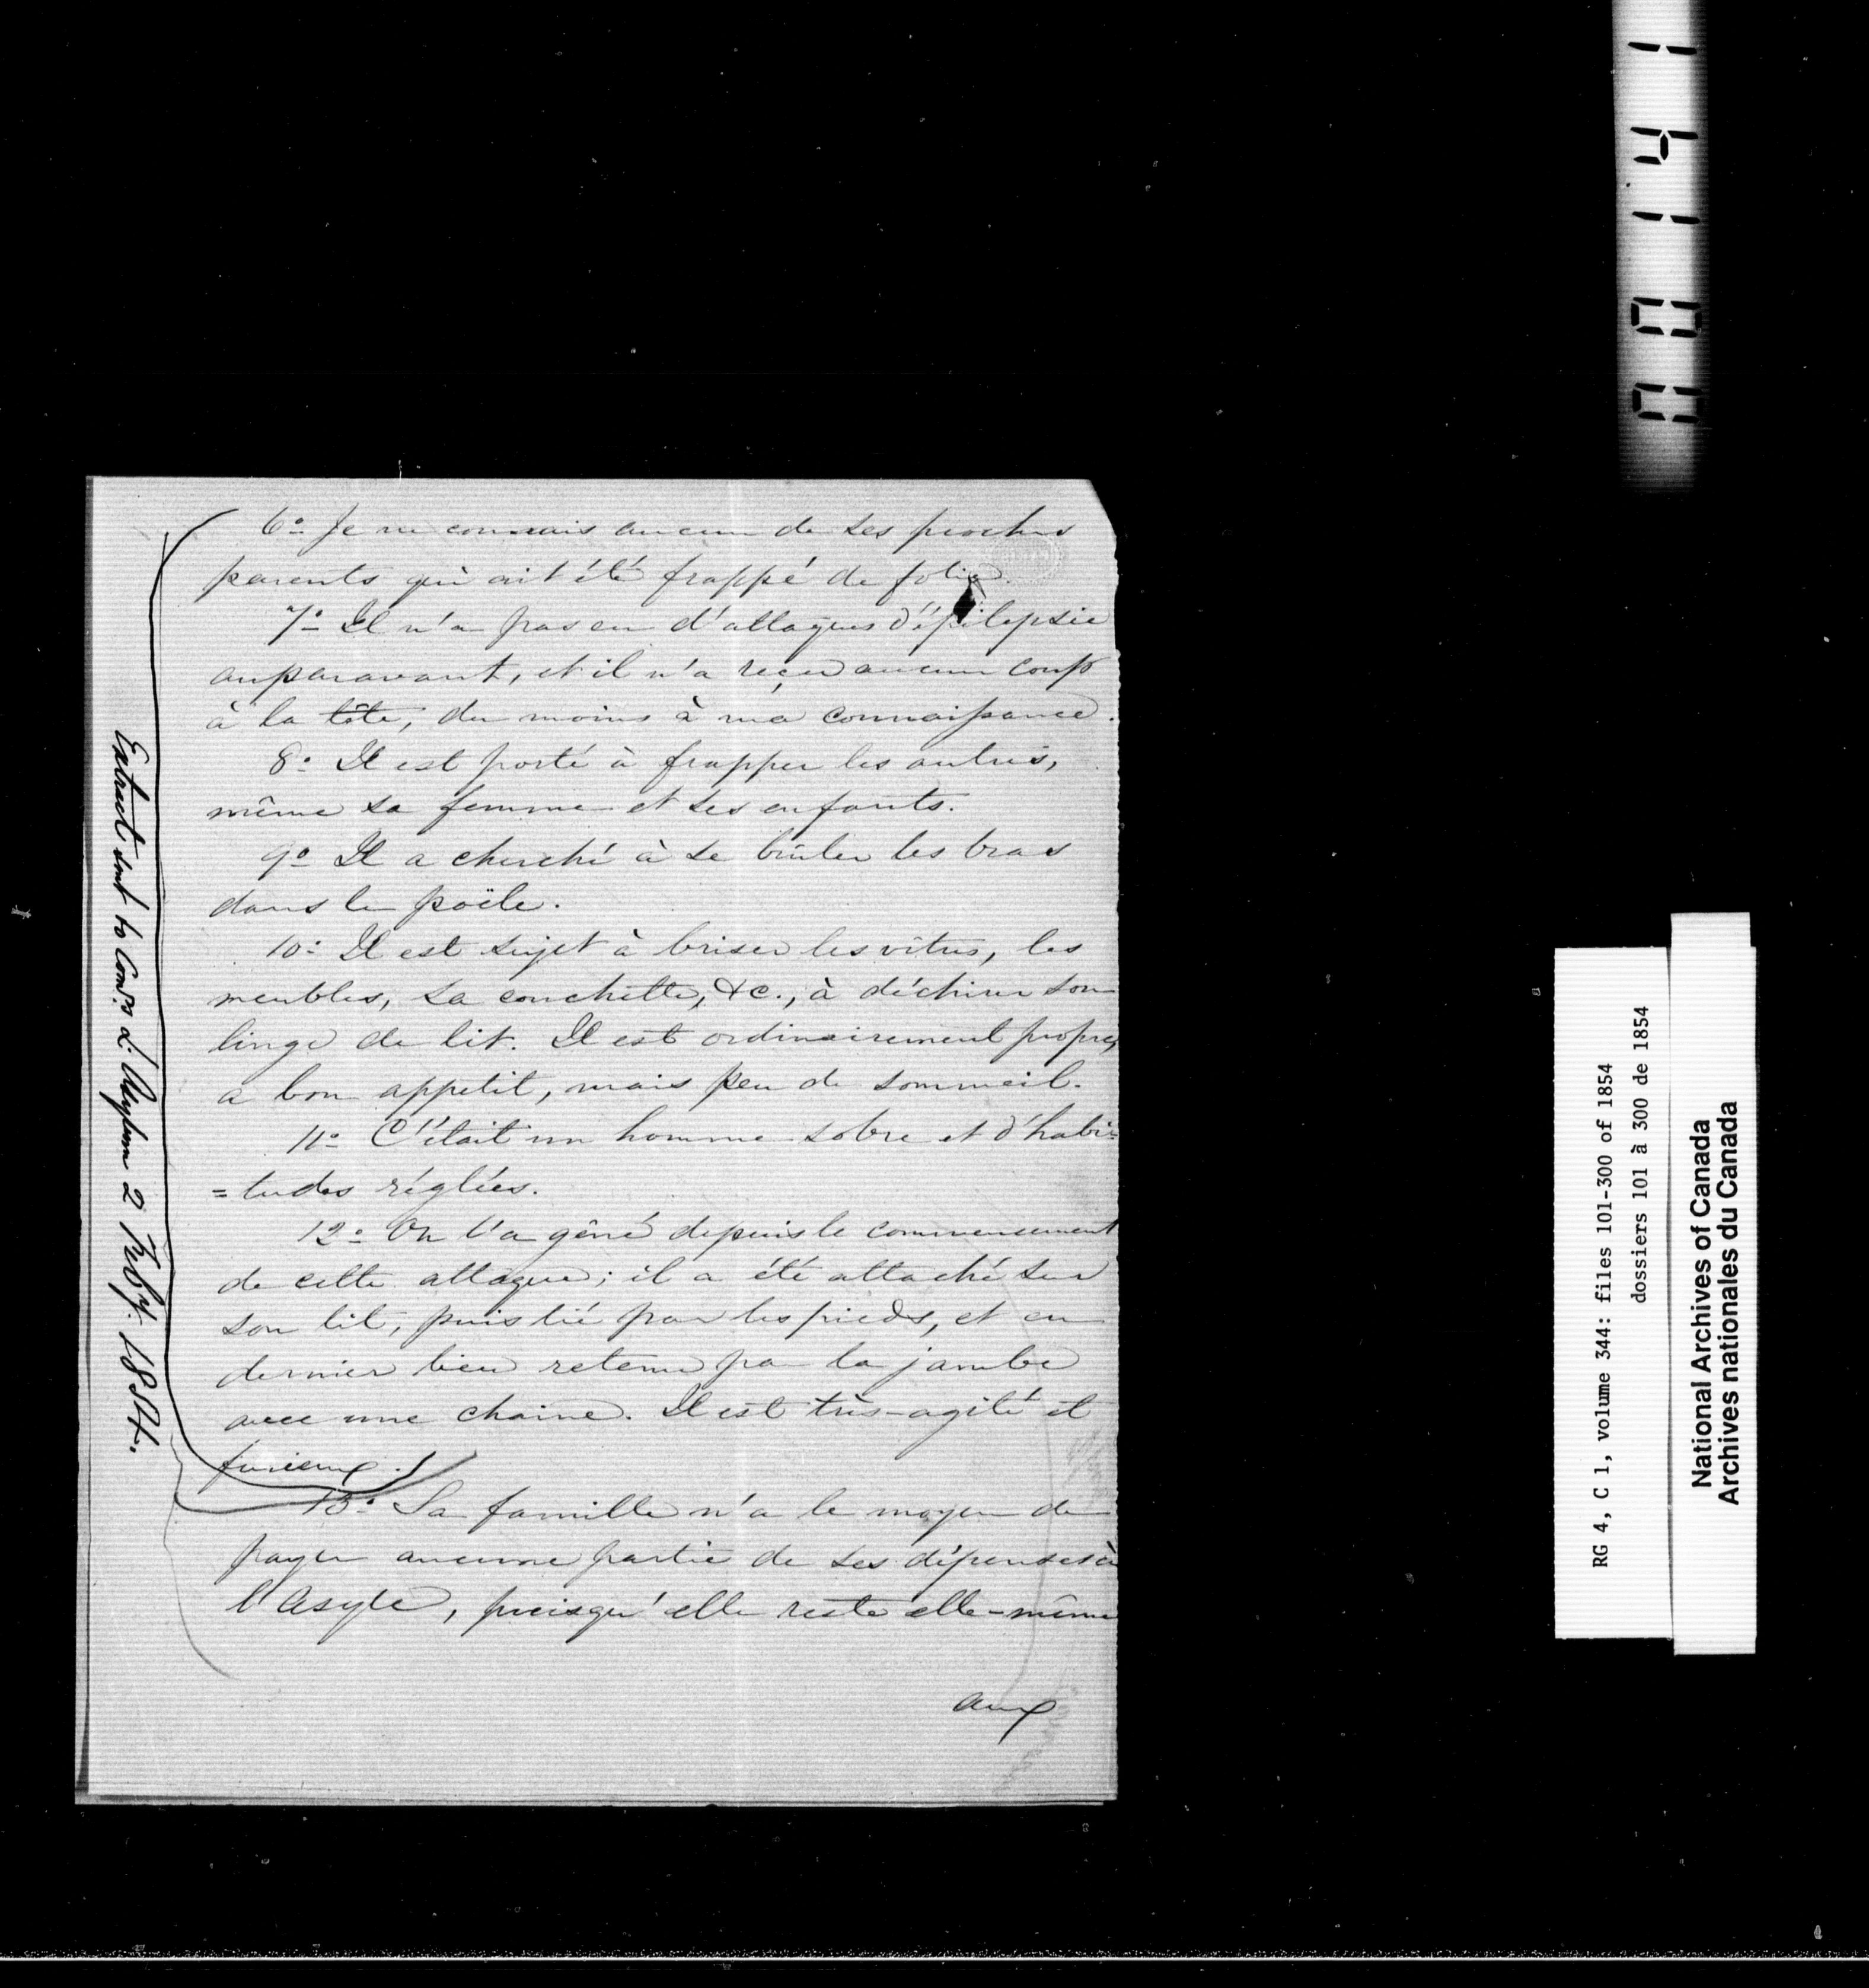 6º. Je ne connais aucun de ses proches
parents qui ait été frappé de folie.
7º. Il n'a pas eu d'attaques d'épilepsie
auparavant, et il n'a reçu aucun coup
à la tête, du moins à ma connaissance.
8º. Il est porté à frapper les autres,
même sa femme et ses enfants.
9º. Il a cherché à se brûler les bras
dans le poële.
10º. Il est sujet à briser les vitres, les
meubles, sa couchette, &c., à déchirer son
linge de lit. Il est ordinairement propre,
a bon appetit, mais peu de sommeil.
11º. C'était un homme sobre et d'habi=
=tudes réglées.
12º. On l'a gêné depuis le commencement
de cette attaque; il a été attaché sur
son lit, puis lié par les pieds, et en
dernier lieu retenu par la jambe
avec une chaine. Il est très-agité et
furieux.
13º. Sa famille n'a le moyen de
payer aucune partie de ses dépenses à
l'Asyle, puisqu'elle reste elle-même
aux
Extract sent to Comrs L. Asylum 2 Feby. 1854.
00141
RG 4, C 1, volume 344: files 101-300 of 1854
dossiers 101 à 300 de 1854
National Archives of Canada
Archives nationales du Canada